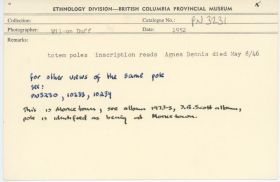 ETHNOLOGY DIVISION—BRITISH COLUMBIA PROVINCIAL MUSEUM
Collection Catalogue No.: PN 3231
Photographer: Wilson Duff 1952
Remarks:
totem poles inscription reads Agnes Dennis died May 8/46
for other views of the same pole
see:
PN3230, 10233, 10234
This is Moricetown, see album 1973-5, J.B. Scott album,
pole is identified as being at Moricetown.